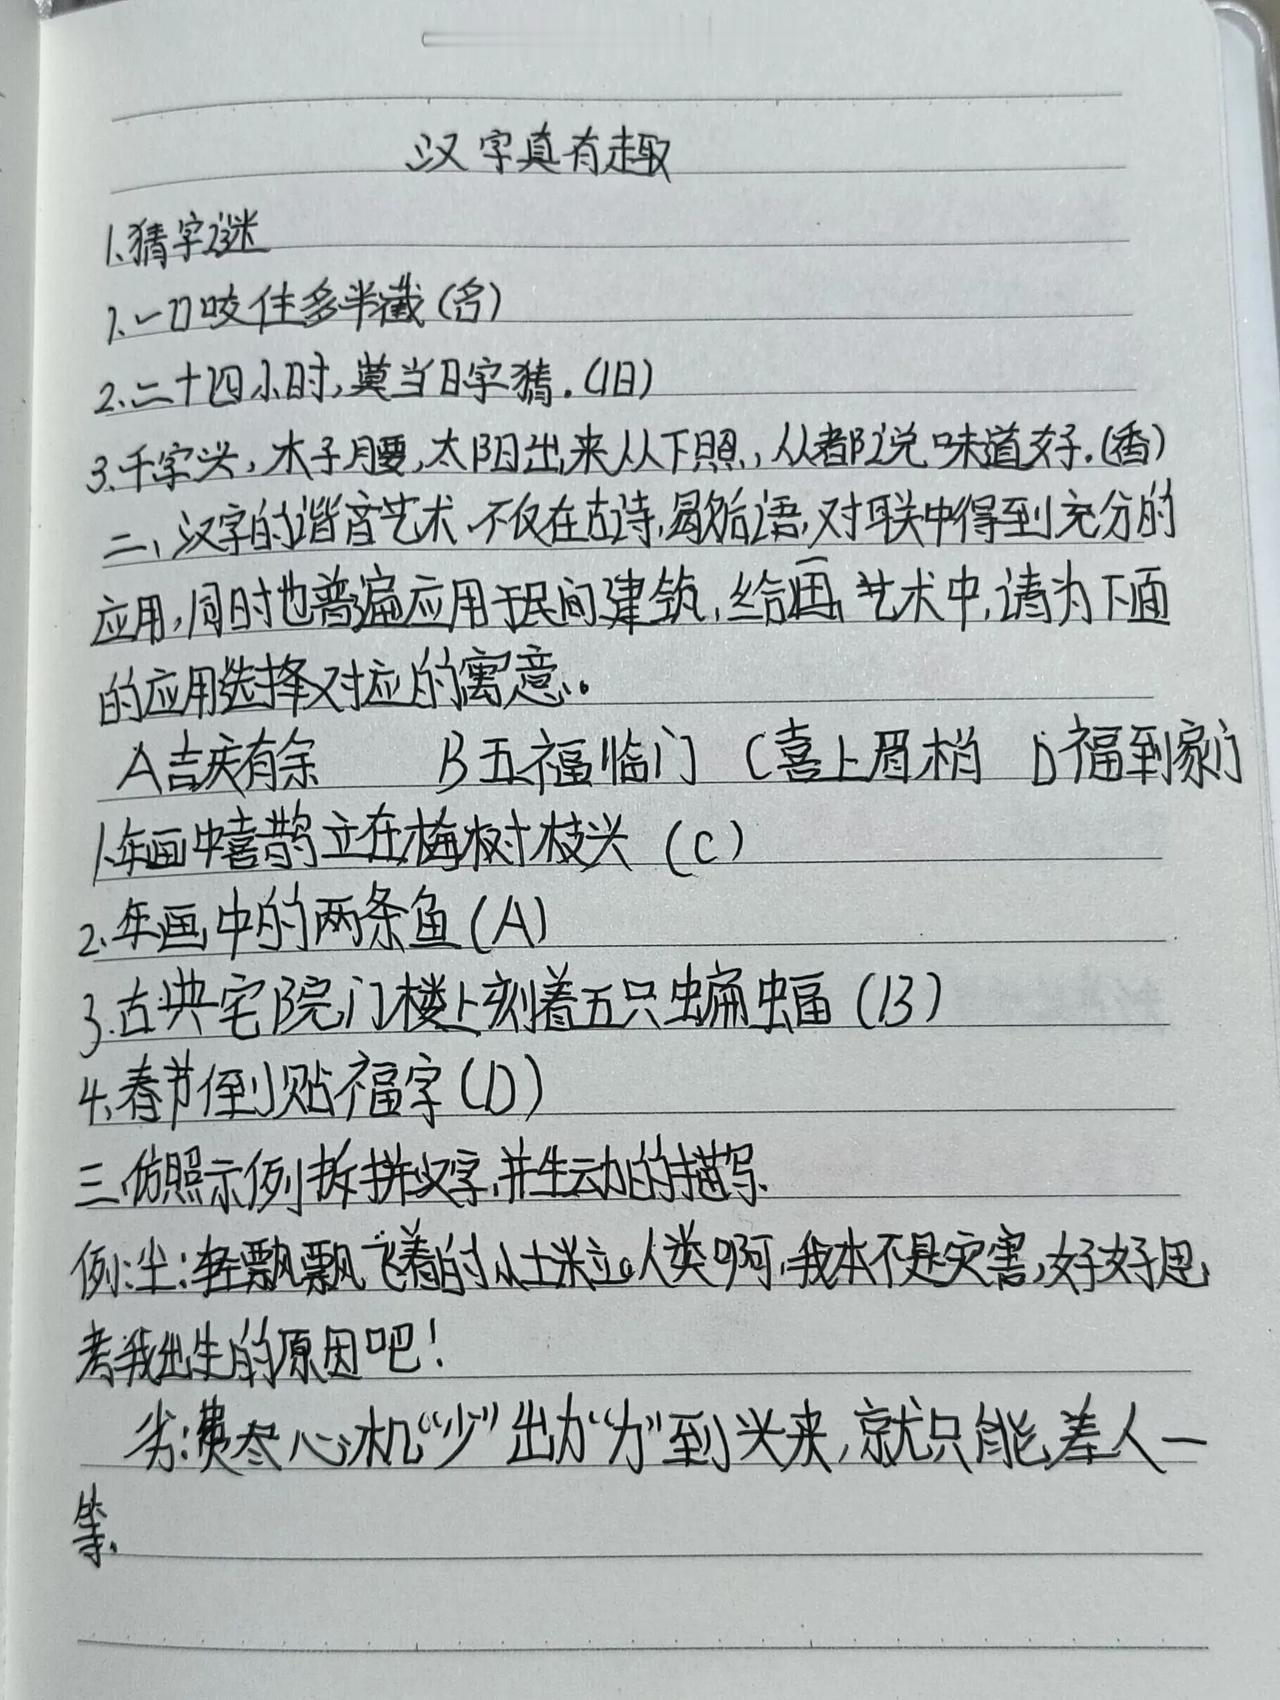 汉字真有趣
1.猜字谜
1.一口咬住多半截(名)
2.二十四小时,莫当日字猜.(旧)
3.千字头,木子腰,太阳出来从下照,从都说味道好.(香)
二、汉字的谐音艺术.不仅在古诗,歇后语,对联中得到充分的
应用,同时也普遍应用于民间建筑,绘画艺术中,请为下面
的应用选择对应的寓意。
A吉庆有余 B五福临门 C喜上眉梢 D福到家门
1.年画中喜鹊立在梅树枝头(C)
2.年画中的两条鱼(A)
3.古典宅院门楼上刻着五只蝙蝠(B)
4.春节倒贴福字(D)
三.仿照示例拆拼汉字,并生动的描写.
例:尘:轻飘飘飞着的小土粒。人类啊,我本不是灾害,好好思
考我出生的原因吧!
劣:费尽心机“少”出力“力”到头来,就只能差人一
等.